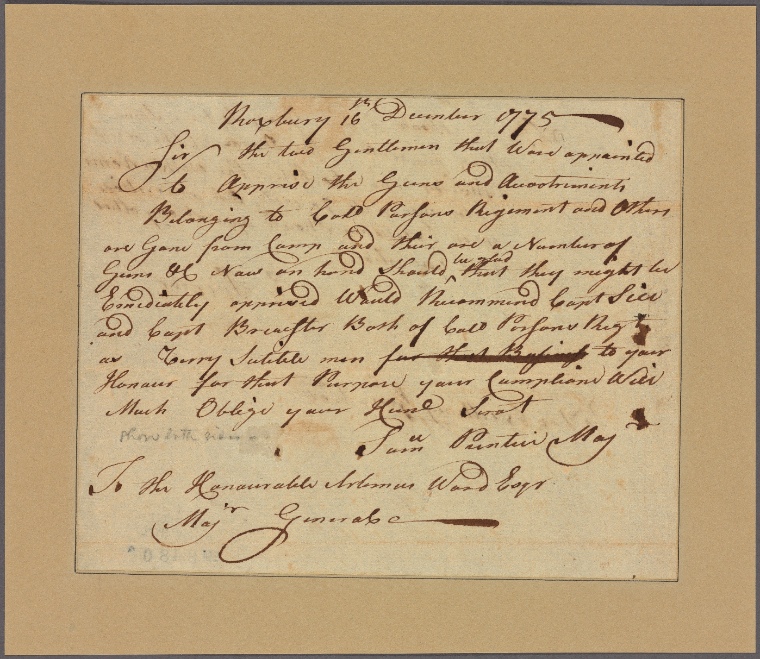 Roxbury 16th December 1775
Sir the two Gentlemen that Ware appointed
to Apprise the Guns and Accotriments
Belonging to Coll Parsons Rigement and Others
are Gone from Camp and thir are a Number of
Guns &c Now on hand Should be glad that they might be
Emediatly apprised Would Recommend Capt Sill
and Capt Brewster Both of Coll Parsons Regt
as Verry Sutible men for that Busness to your
Honour for that Purpose your Complianc Will
Much Oblige your Hume Servt
Samll Prentice Majr
To the Honourable Artemas Ward Esqr
Majr General